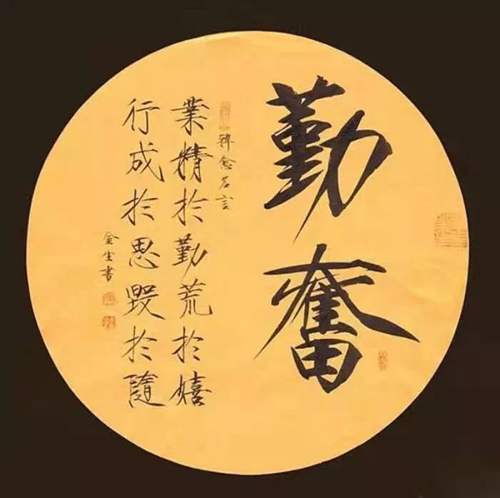 勤奮
韓愈名言
業精於勤荒於嬉
行成於思毀於隨
金生書